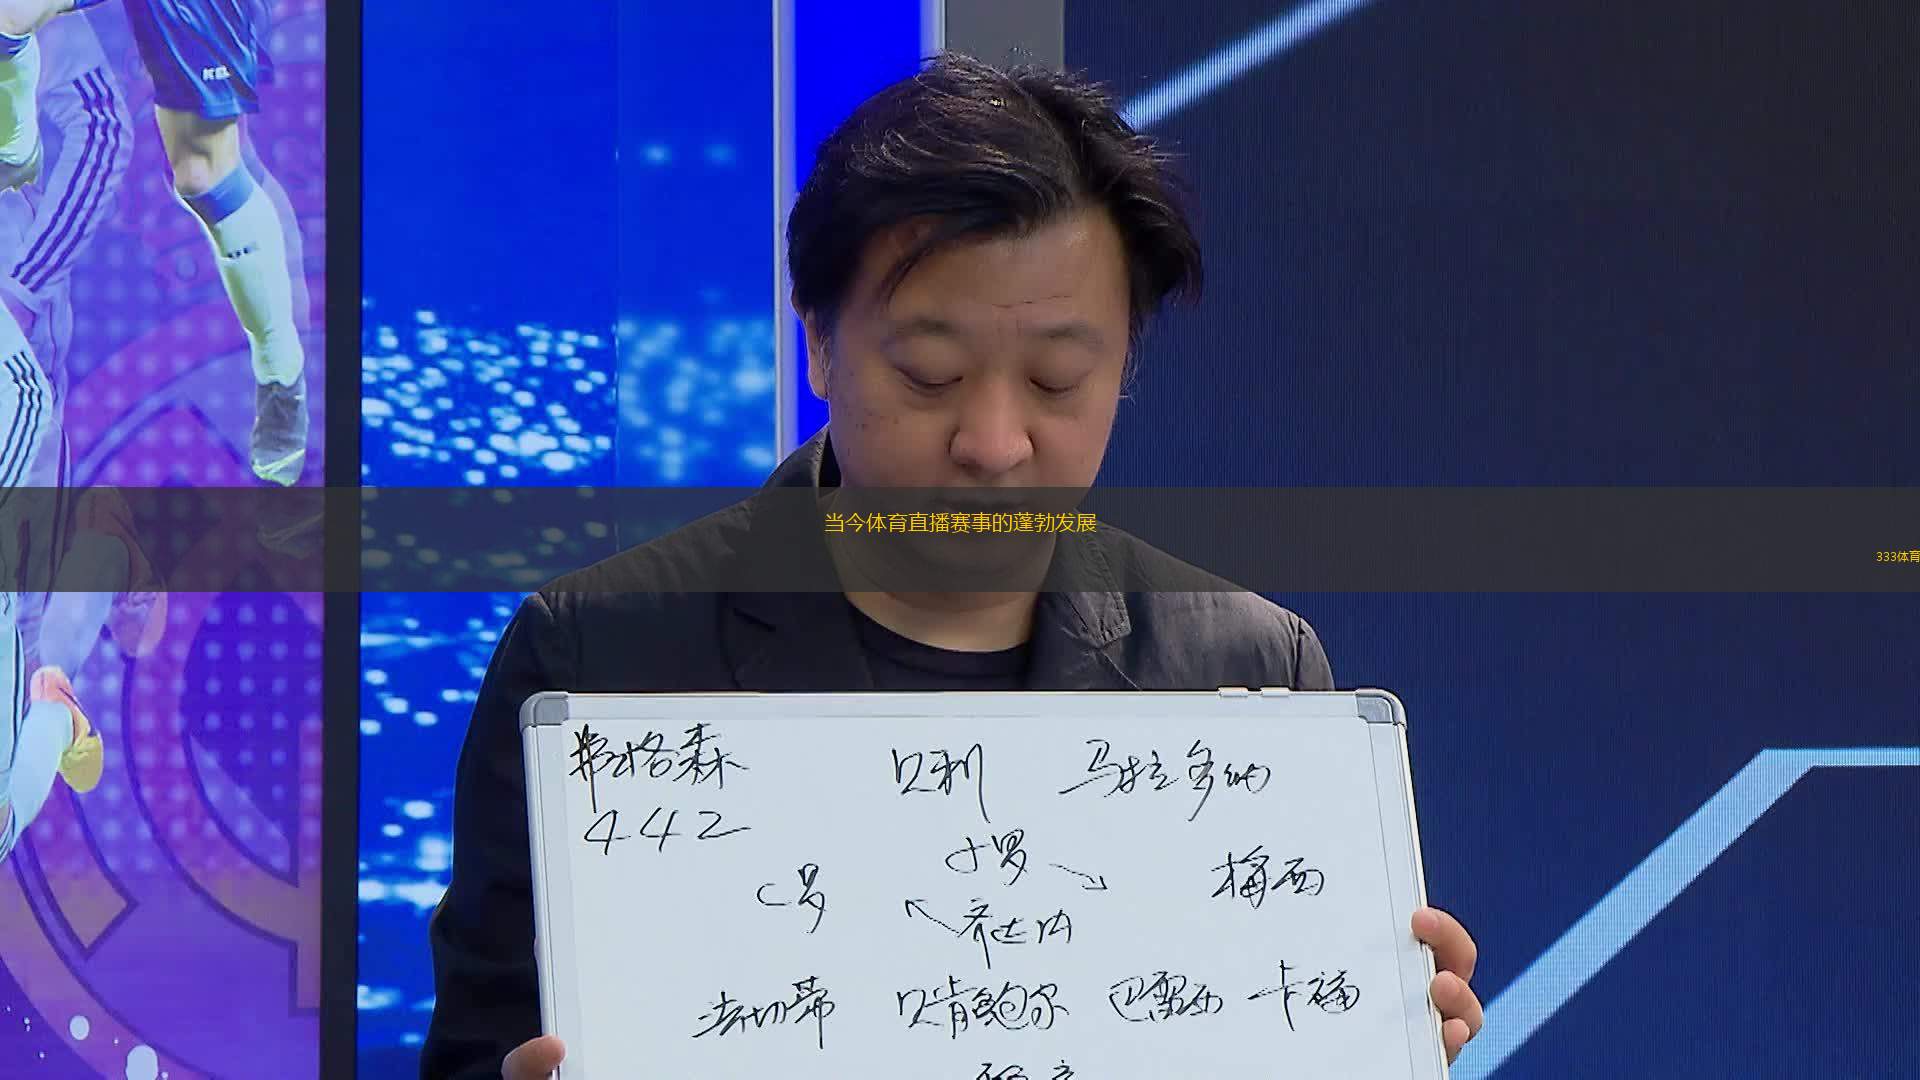 当今体育直播赛事的蓬勃发展
333体育
弗格森 贝利 马拉多纳
442
小罗
C罗 梅西
齐达内
法切蒂 贝肯鲍尔 巴雷西 卡福